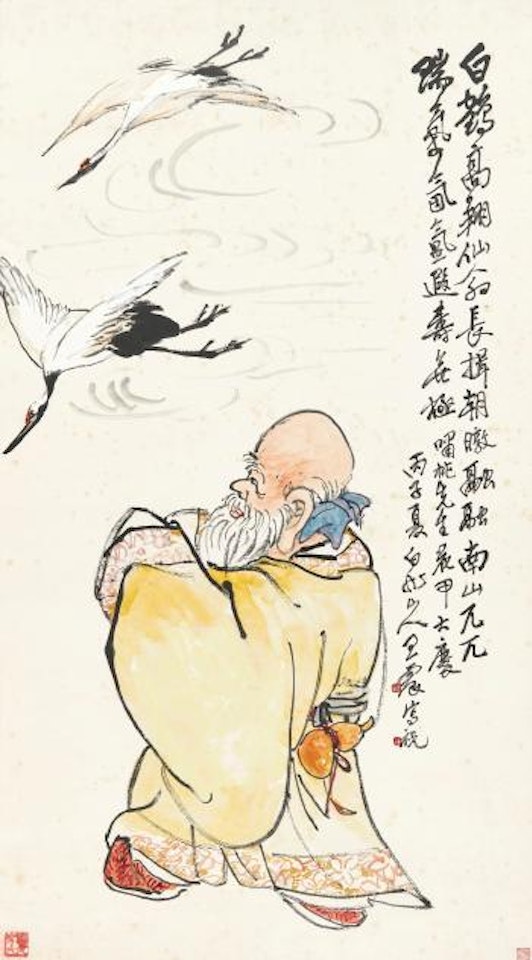 白鶴高翔仙翁長揖朝暾融融南山兀兀
瑞氣氤氳遐壽無極
先生 甲大慶
丙子夏白龍山人王震寫祝